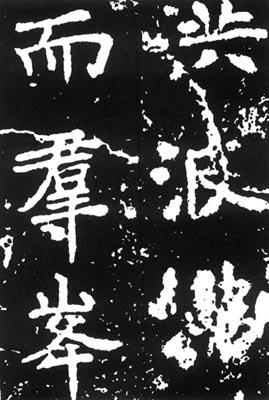 洪波
而羣峯